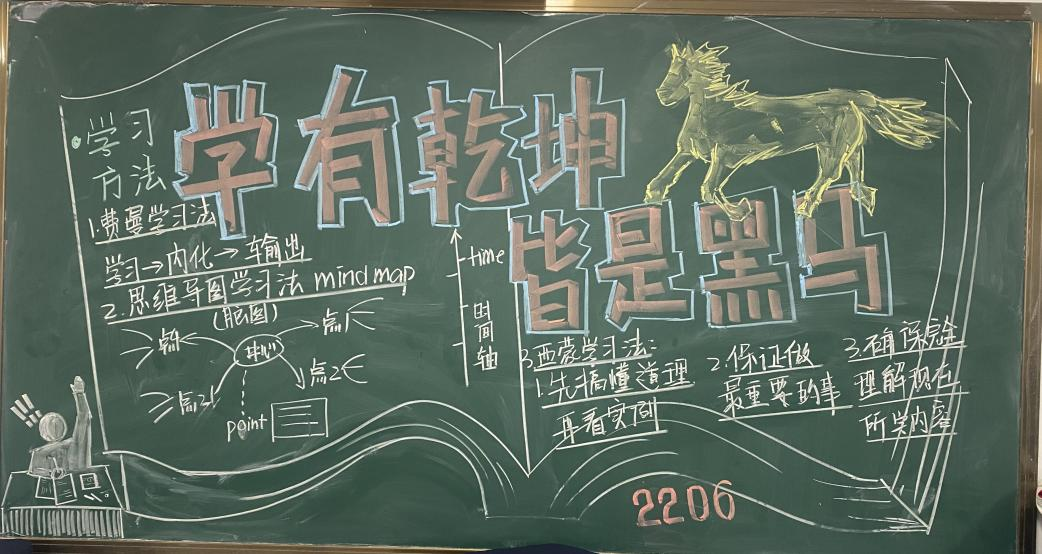 学有乾坤
皆是黑马
学习
方法
1.费曼学习法
学习→内化→输出
2.思维导图学习法 mind map
(脑图)
中心
点1
点2
point
time
时间轴
3.西蒙学习法:
1.先搞懂道理
再看实例
2.保证做
最重要的事
3.确保完全
理解现在
所学内容
2206